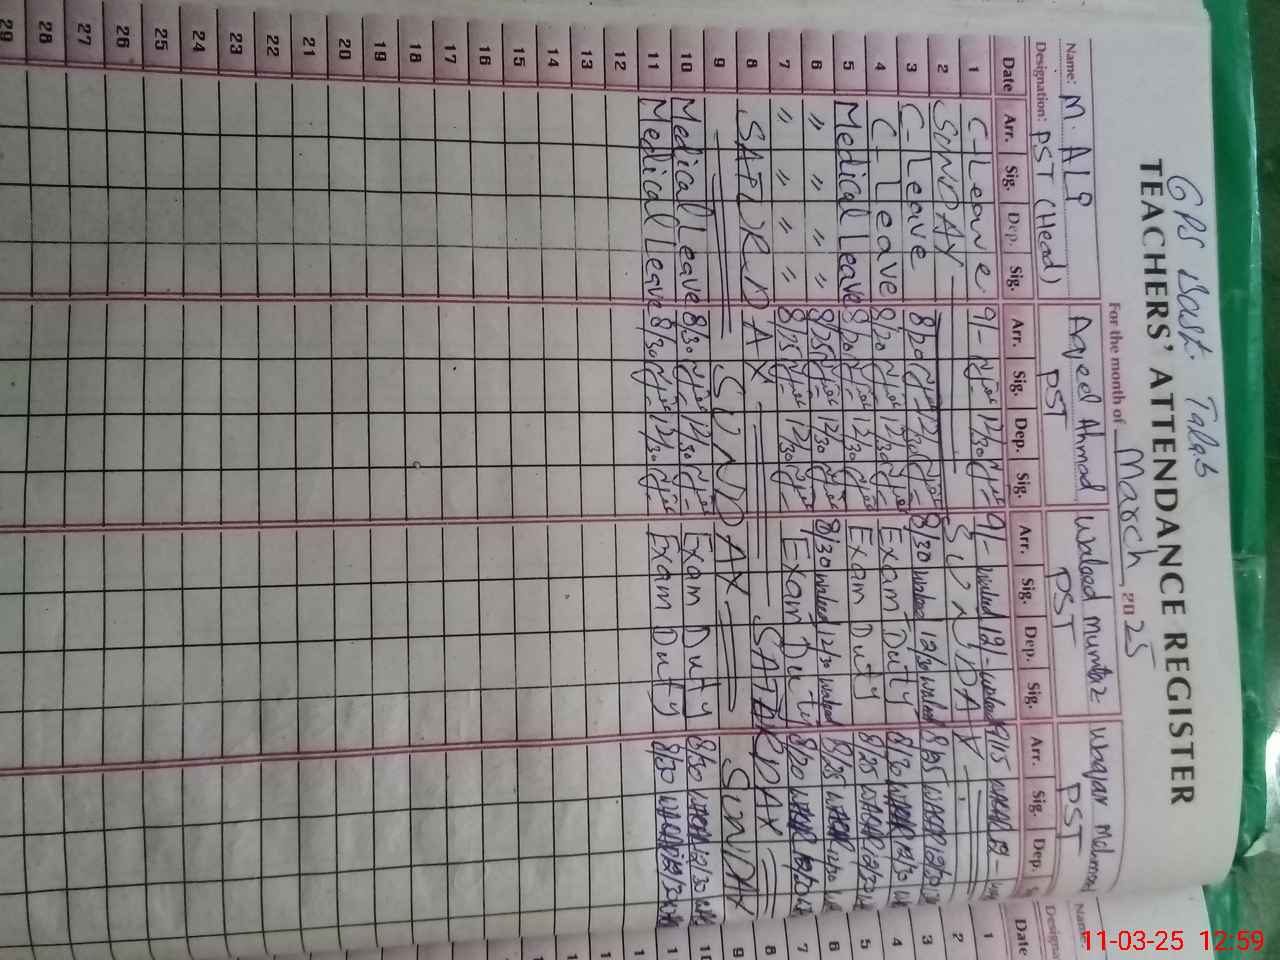 GPS Basti Talab
TEACHERS' ATTENDANCE REGISTER
For the month of March, 2025
Name: M. ALP Aqeel Ahmad Waleed Mumtaz Waqar Mehmood
Designation: PST (Head) PST PST PST
Date Arr. Sig. Dep. Sig. Arr. Sig. Dep. Sig. Arr. Sig. Dep. Sig. Arr. Sig. Dep. S
1 C-Leave 9/- 12/30 9/- waleed 12/- waleed 9/15 WAQAR 12/-
2 SUNDAY SUNDAY
3 C-Leave 8/20 12/30 8/30 waleed 12/30 waleed 8/25 WAQAR 12/30
4 C-Leave 8/20 12/30 Exam Duty 8/30 WAQAR 12/30
5 Medical Leave 8/20 12/30 Exam Duty 8/25 WAQAR 12/30
6 " " " " 8/25 12/30 8/30 waleed 12/30 waleed 8/25 WAQAR 12/30
7 " " " " 8/25 12/30 Exam Duty 8/20 WAQAR 12/30
8 SATURDAY SATURDAY
9 SUNDAY SUNDAY
10 Medical Leave 8/30 12/30 Exam Duty 8/30 WAQAR 12/30
11 Medical Leave 8/30 12/30 Exam Duty 8/30 WAQAR 12/30
12
13
14
15
16
17
18
19
20
21
22
23
24
25
26
27
28
29
Name:
Designa
Date
1
2
3
4
5
6
7
8
9
10
1
11-03-25 12:59